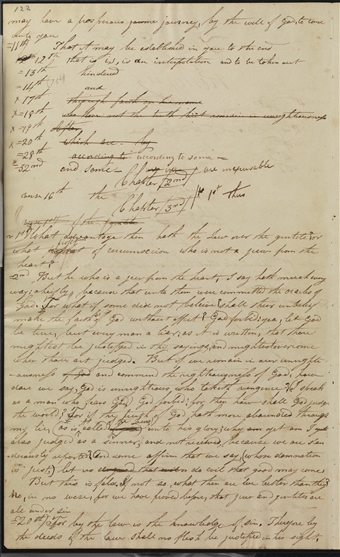 122
may have a prosperous journey, by the will of God, to come
unto you
=11th That it may be established in you to the end
12th that is, is an interpolation and to be taken out
=13th hindered
=14th and
x 17th through faith on his name
x=18th who them out the truth but remain in unrighteousness
x=19th After,
x=20th which are. by
=28th according to according to some —
=32nd and some — are inexcusable
Chapter 2nd
16th the
Chapter 3rd 1st thus
1st What advantage then hath the Jew over the gentile? or
what of circumcision who is not a jew from the
heart?
2nd But he who is a jew from the heart, I say hath much every
way; chiefly, because that unto them were committed the oracles of
God. For what if some did not believe? shall their unbelief
make the faith of God without effect? God forbid: yea, let God
be true, but every man a liar, as it is written, that thou
mightest be justified in thy sayings, and mightest overcome
when thou art judged. But if we remain in our unrighte-
-ousness and commend the righteousness of God, how
dare we say, God is unrighteous who taketh vengeance? I speak
as a man who fears God, God forbid; for then how shall God judge
the world? For if the truth of God hath more abounded through
my lie, as is called unto his glory; why am yet am I yet
also judged as a sinner; and not received, because we are slan
derously reported? and some affirm that we say, whose damnation
is just; let us do evil that good may come.
But this is false. If not so, what then are we better than they?
No, in no wise; for we have proved before, that jews and gentiles are
all under sin
20th For by the law is the knowledge of sin. Therefore by
the deeds of the law shall no flesh be justified in his sight,